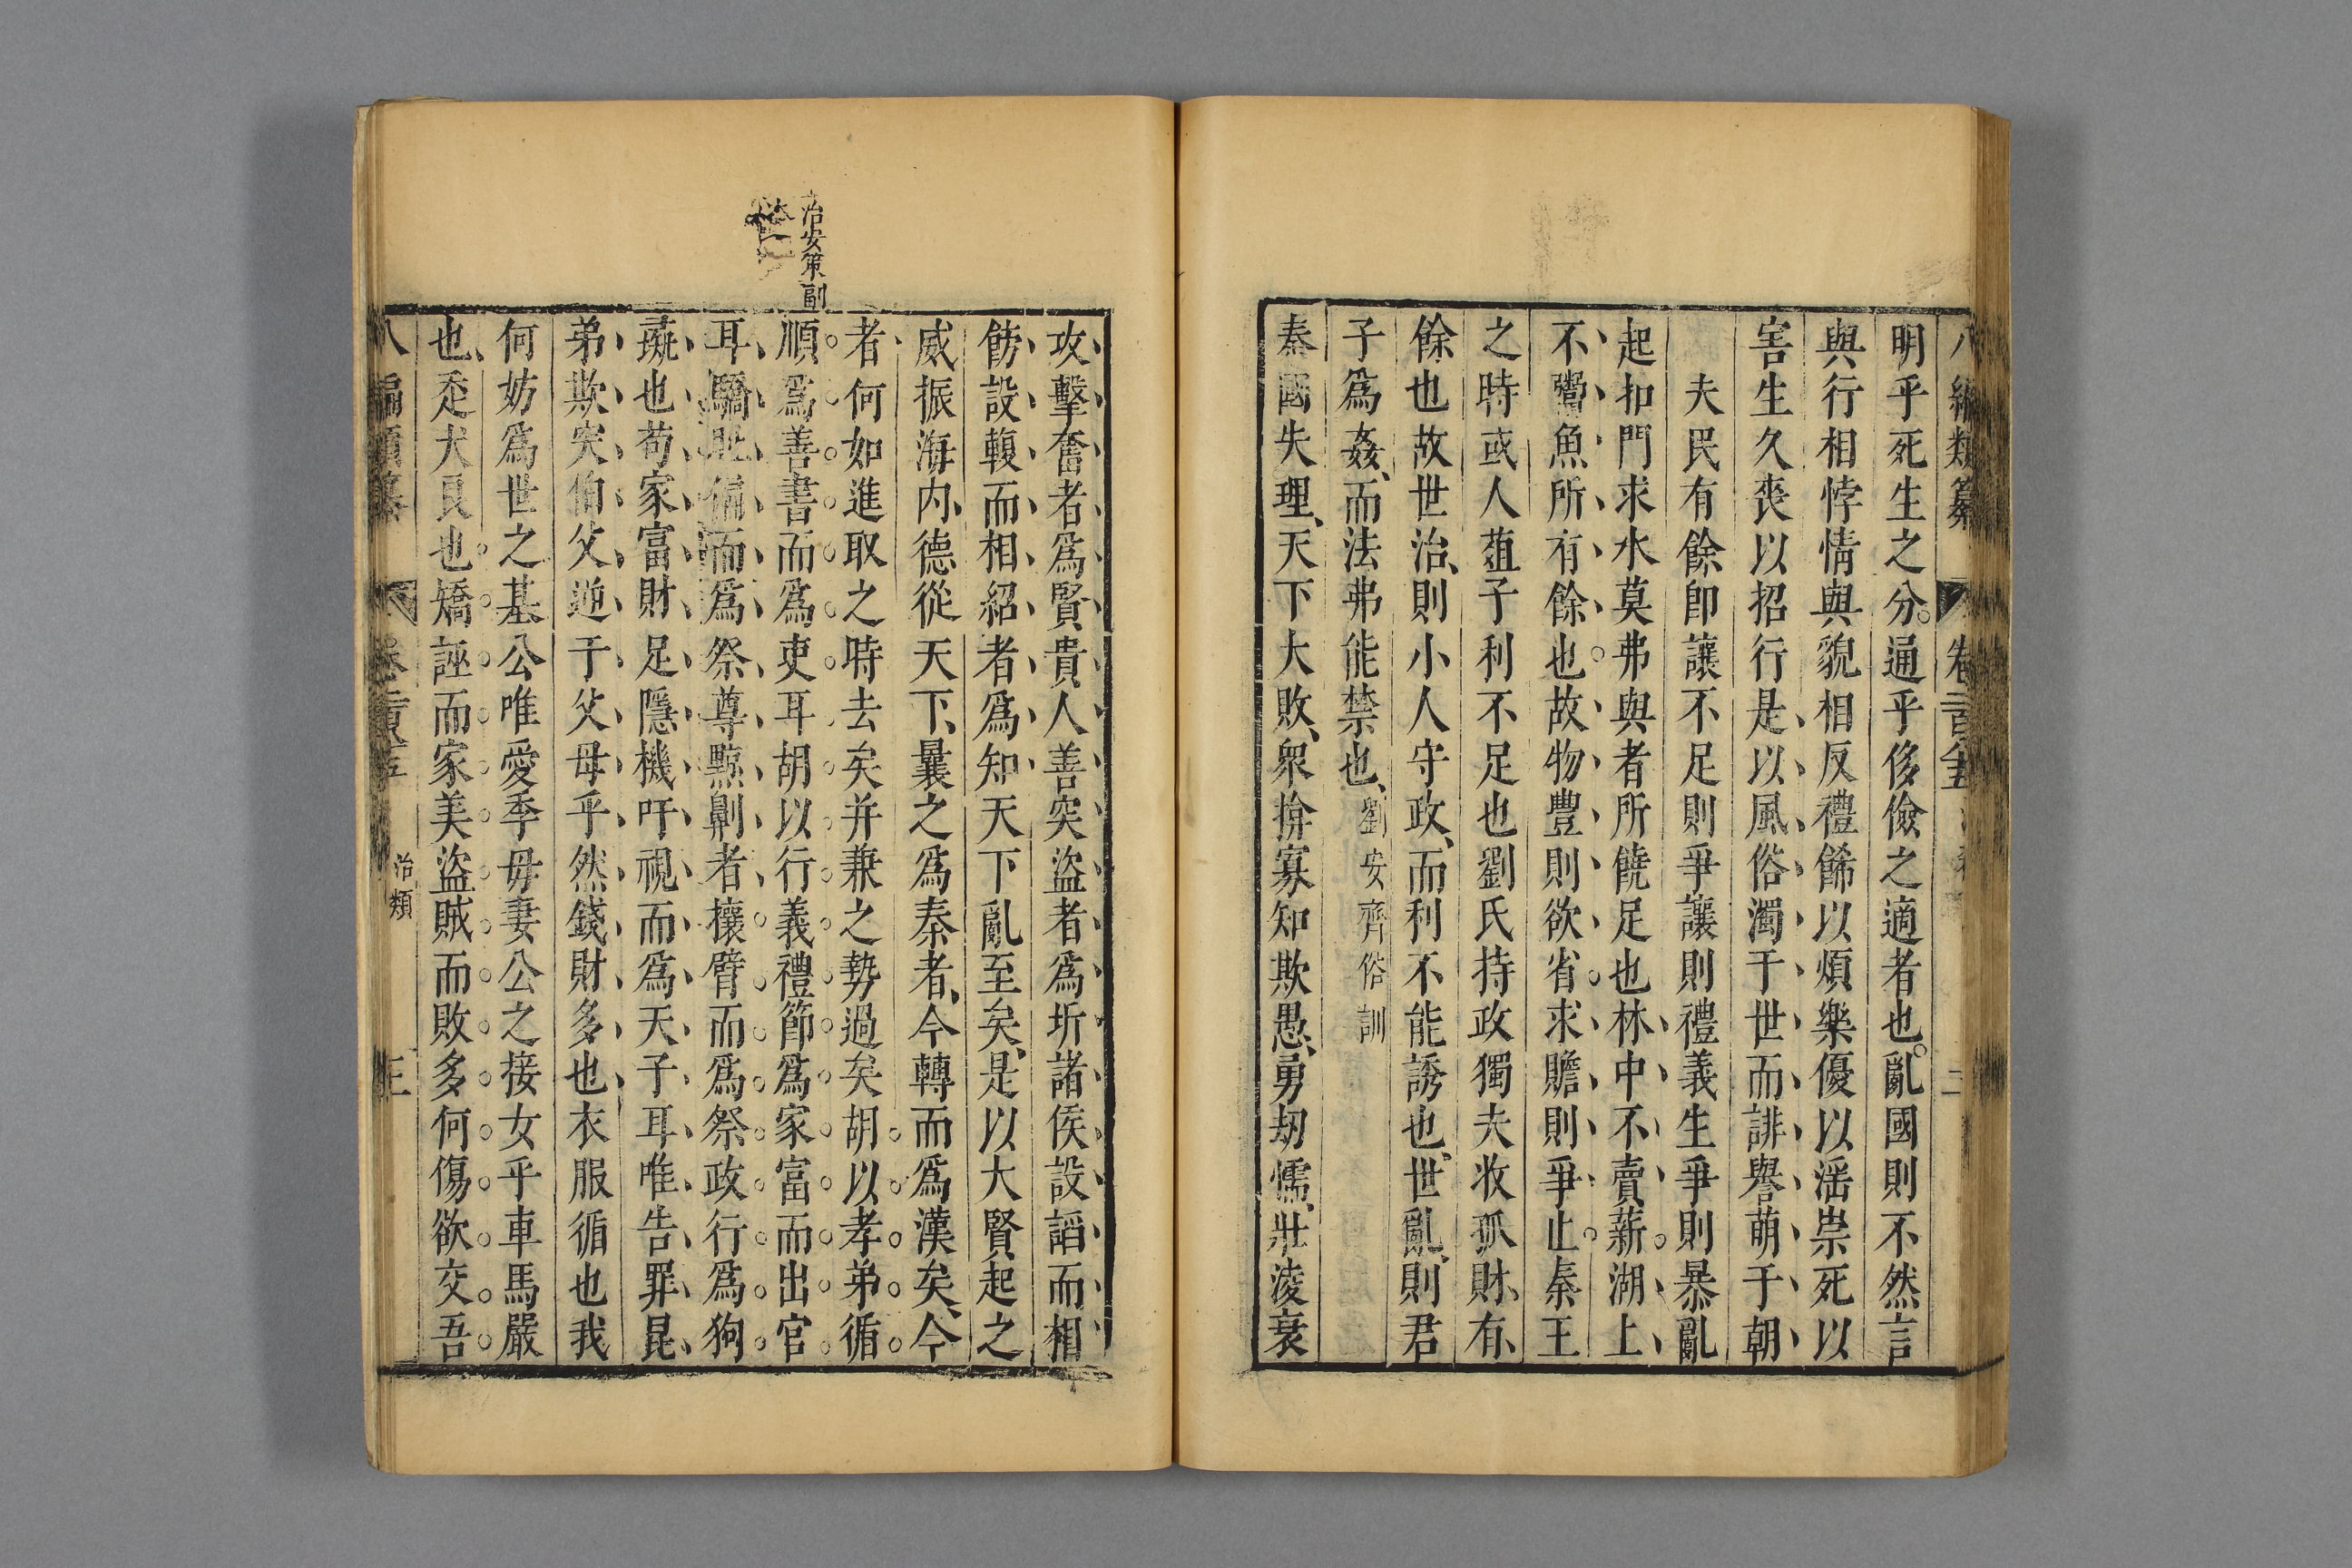 八編類纂 卷二百全五 二
明乎死生之分。通乎侈儉之適者也。亂國則不然言
與行相悖情與貌相反禮餙以煩樂優以淫崇死以
害生久喪以招行是、以、風、俗、濁、于、世、而、誹、譽、萌、于、朝、
夫民有餘卽讓不足則爭讓則禮義生爭則暴亂
起扣門求水莫弗與者所饒足也林、中、不、賣、薪。湖、上、
不、鬻、魚、所、有、餘、也。故、物、豐、則、欲、省。求、贍、則、爭、止。秦王
之時或人葅子利不足也劉氏持政獨夫收孤財、有、
餘也故世治、則小人守政、而利不能誘也、世亂、則君
子爲姦、而法弗能禁也、劉安齊俗訓
秦國失理、天下大敗、衆揜寡知欺愚、勇刼懦、壯淩衰
攻、擊、奮、者、爲、賢、貴、人、善、突、盜、者、爲、圻、諸、侯、設、謟、而、相、
餝、設、輹、而、相、紹、者、爲、知、天下亂至矣、是以大賢起之
威振海内、德從天下、曩之爲秦者、今轉而爲漢矣、今
者、何如進取之時去矣并兼之勢過矣胡。以。孝。弟。循。
順。爲。善。書。而。爲。吏。耳。胡。以。行。義。禮。節。爲。家。富。而。出。官。
耳、驕、恥、偏、而、爲、祭、尊、黥、劓、者、攘。臂。而。爲。祭。政。行。爲。狗。
彘、也、苟、家、富、財、足、隱、機、吁、視、而、爲、天、子、耳、唯、告、罪、昆、
弟、欺、突、伯、父、逆、于、父、母、乎、然、錢、財、多、也、衣服循也我
何妨爲世之基公唯愛季毋妻公之接女乎車馬嚴
也、走犬良也。矯。誣。而。家。美。盜。賊。而。敗。多。何。傷。欲。交。吾。
治安策副
八編類纂 治類 三